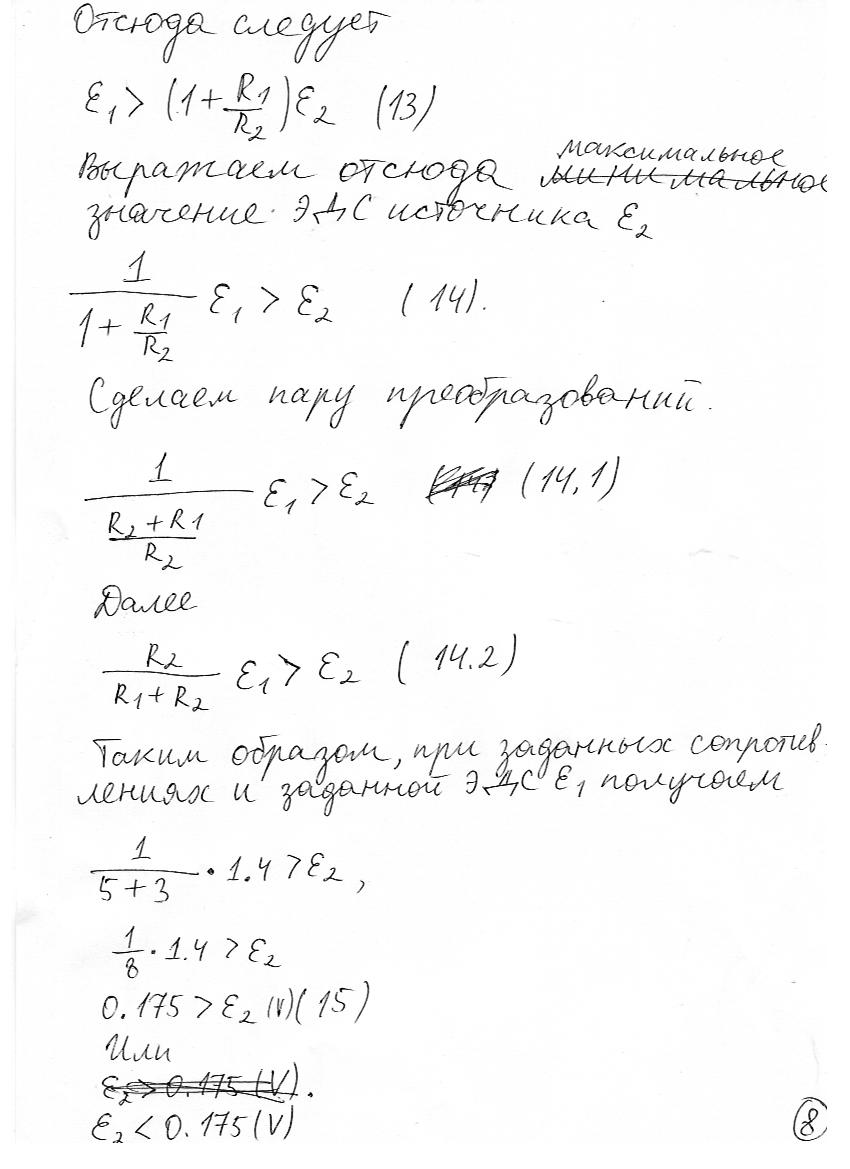 Отсюда следует
ε₁ > (1 + R1/R2) ε₂ (13)
максимальное
Выражаем отсюда минимальное
значение ЭДС источника ε₂
1/(1 + R1/R2) ε₁ > ε₂ (14).
Сделаем пару преобразований.
1/((R2 + R1)/R2) ε₁ > ε₂ (14,1)
Далее
R2/(R1 + R2) ε₁ > ε₂ (14.2)
Таким образом, при заданных сопротив-
лениях и заданной ЭДС ε₁ получаем
1/(5 + 3) · 1.4 > ε₂,
1/8 · 1.4 > ε₂
0.175 > ε₂ (V) (15)
Или
ε₂ > 0.175 (V).
ε₂ < 0.175 (V)
8